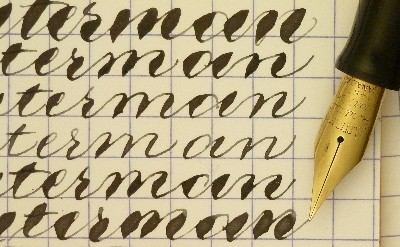 terman
terman
terman
term an
terman
terman